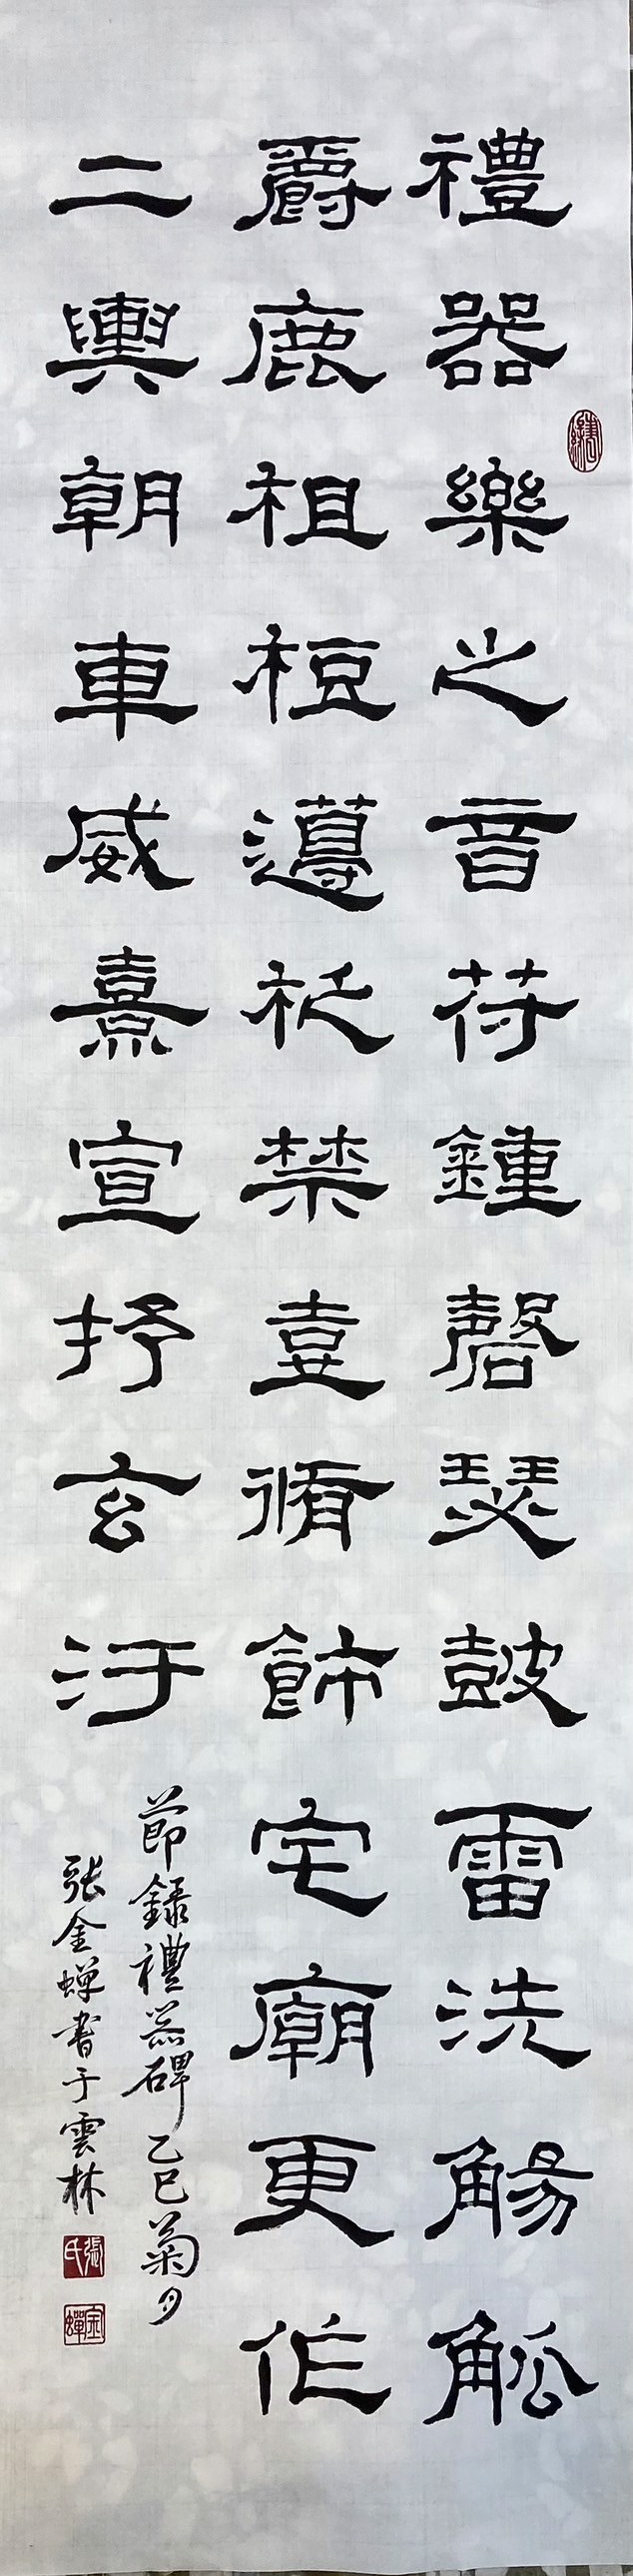 禮器樂之音苻鍾磬瑟鼓雷洗觴觚
爵鹿柤梪籩柉禁壺脩飾宅廟更作
二輿朝車威熹宣抒玄汙
節錄禮器碑乙巳菊月
張金蟬書于雲林
張氏
金蟬